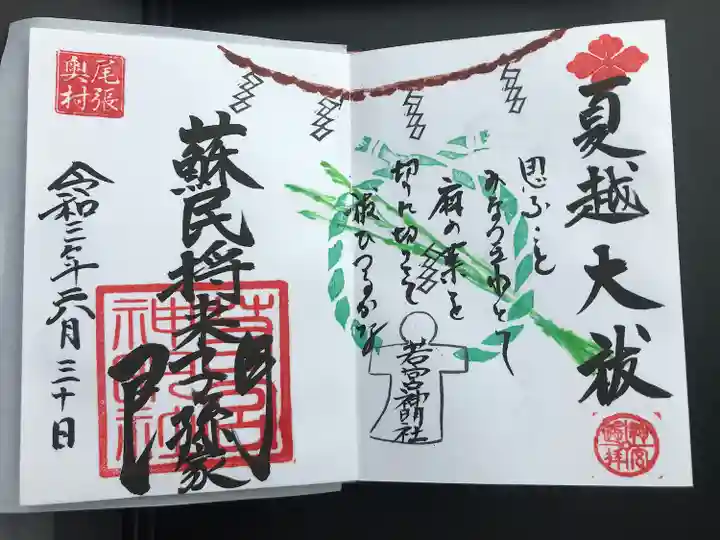 夏越大祓
思ふこと
みなつきねとて
麻の葉を
切りに切りても
祓ひつるかな
若宮神明社
蘇民将来子孫家門
尾張
奥村
令和三年六月三十日
若宮神明社